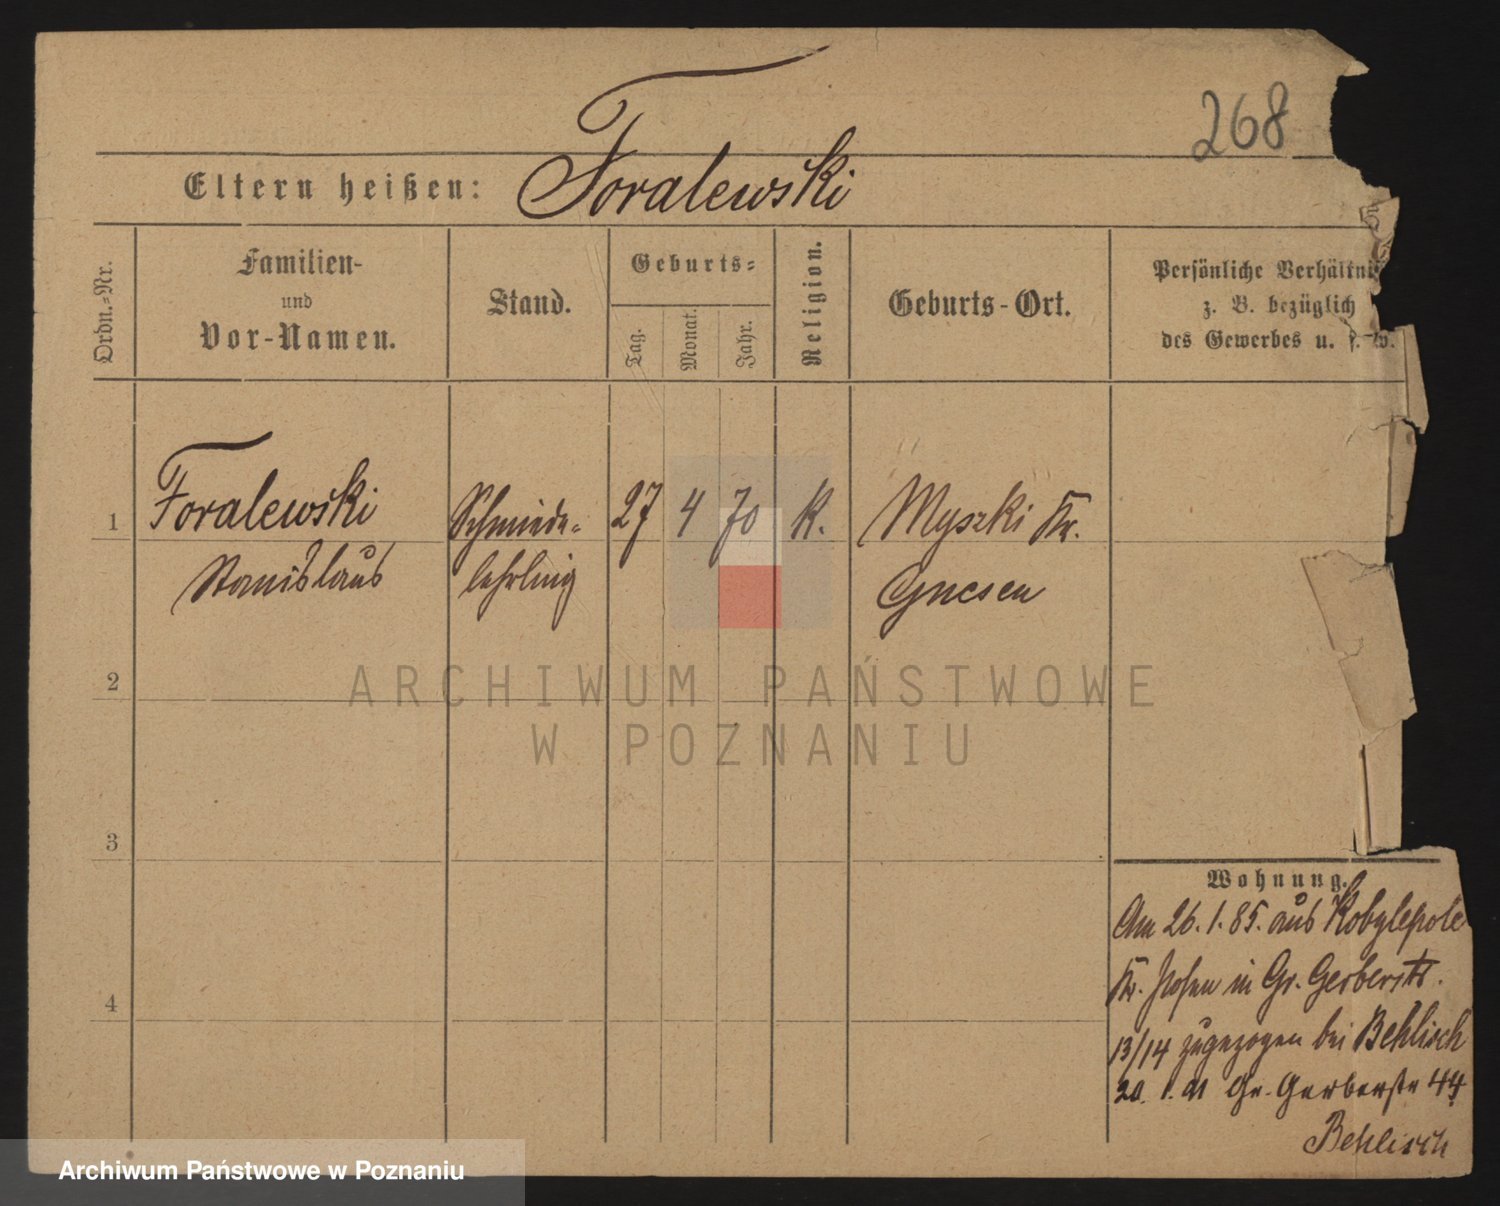 268
Eltern heißen: Foralewski
Ordn.-Nr.
Familien-
und
Vor-Namen.
Stand.
Geburts-
Tag.
Monat.
Jahr.
Religion.
Geburts-Ort.
Persönliche Verhältni
z. B. bezüglich
des Gewerbes u. s. w.
1 Foralewski Schmiede- 27 4 70 K. Myszki Kr.
Stanislaus lehrling Gnesen
2
3
4
Wohnung.
Am 26.1.85. aus Kobylepole
Kr. Posen in Gr. Gerberstr.
13/14 zugezogen bei Behlisch
20. 1. 91 Gr. Gerberstr 44
Behlisch
ARCHIWUM PAŃSTWOWE
W POZNANIU
Archiwum Państwowe w Poznaniu